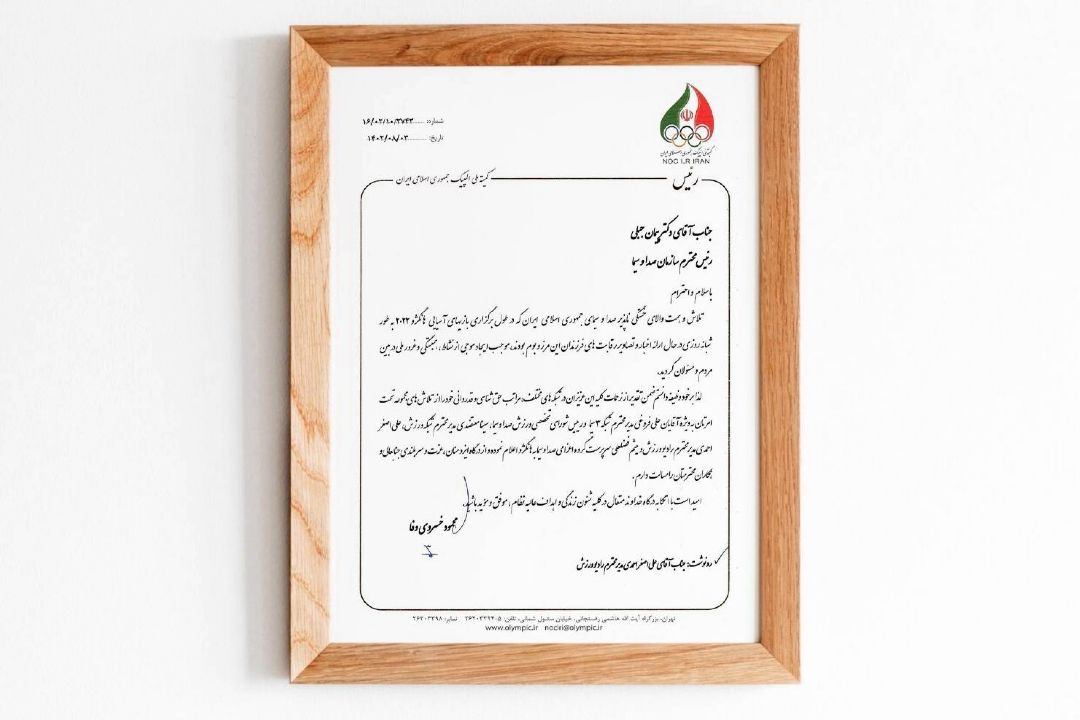 شماره: ۱۶/۰۲/۱۰/۳۷۴۳
تاریخ: ۱۴۰۲/۰۸/۰۳
کمیته ملی المپیک جمهوری اسلامی ایران
NOC I.R IRAN
رئیس
کمیته ملی المپیک جمهوری اسلامی ایران
جناب آقای دکتر پیمان جبلی
رئیس محترم سازمان صدا و سیما
با سلام و احترام
تلاش و همت والای خستگی ناپذیر صدا و سیمای جمهوری اسلامی ایران که در طول برگزاری بازیهای آسیایی هانگژو ۲۰۲۲ به طور
شبانه روزی در حال ارائه اخبار و تصاویر رقابت های فرزندان این مرز و بوم بودند، موجب ایجاد موجی از نشاط، همبستگی و غرور ملی در بین
مردم و مسئولان گردید.
لذا بر خود وظیفه دانستم ضمن تقدیر از زحمات کلیه این عزیزان در شبکه های مختلف، مراتب حق شناسی و قدردانی خود را از تلاش های مجموعه تحت
امرتان به ویژه آقایان علی فروغی مدیر محترم شبکه ۳ سیما و رییس شورای تخصصی ورزش صدا و سیما، سینا معتقدی مدیر محترم شبکه ورزش، علی اصغر
احمدی مدیر محترم رادیو ورزش و میثم فضلعلی سرپرست گروه اعزامی صدا و سیما به هانگژو اعلام نموده و از درگاه ایزد منان، عزت و سربلندی جنابعالی و
همکاران محترمتان را مسالت دارم.
امید است با اتکا به درگاه خداوند متعال در کلیه شئون زندگی و اهداف عالیه نظام، موفق و موید باشید.
محمود خسروی وفا
رونوشت: جناب آقای علی اصغر احمدی مدیر محترم رادیو ورزش
تهران، بزرگراه آیت الله هاشمی رفسنجانی، خیابان سئول شمالی، تلفن: ۵-۲۶۲۰۳۳۹۲ نمابر: ۲۶۲۰۳۳۹۸
www.olympic.ir nociri@olympic.ir